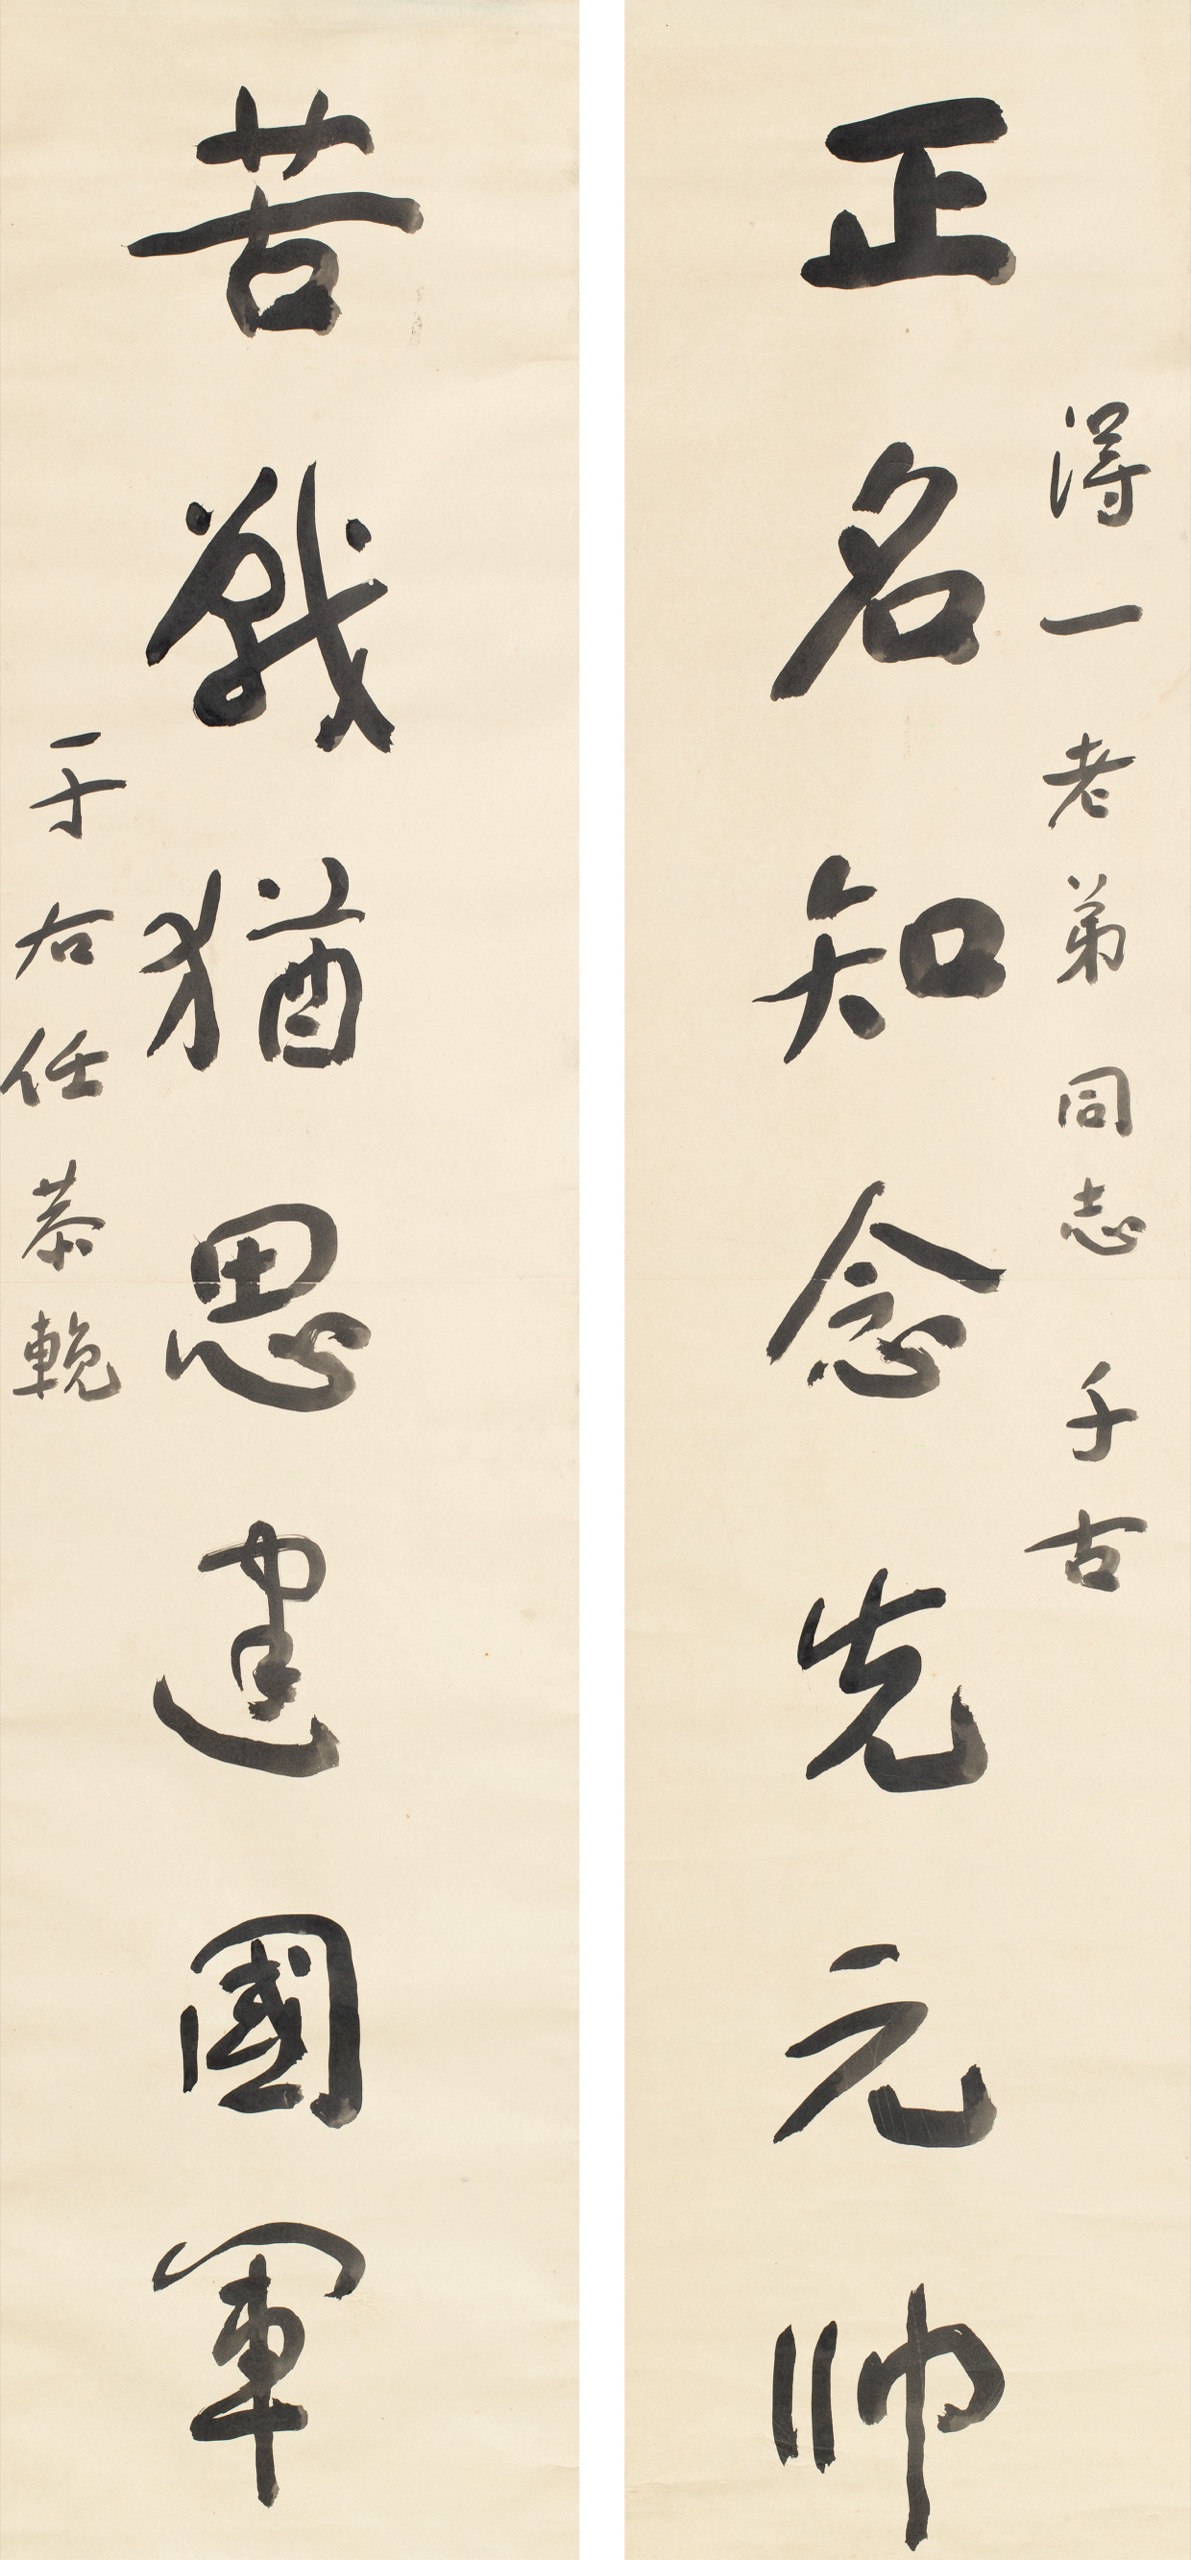 得一老弟同志千古
正名知念先元帥
苦戰猶思建國軍
于右任恭輓